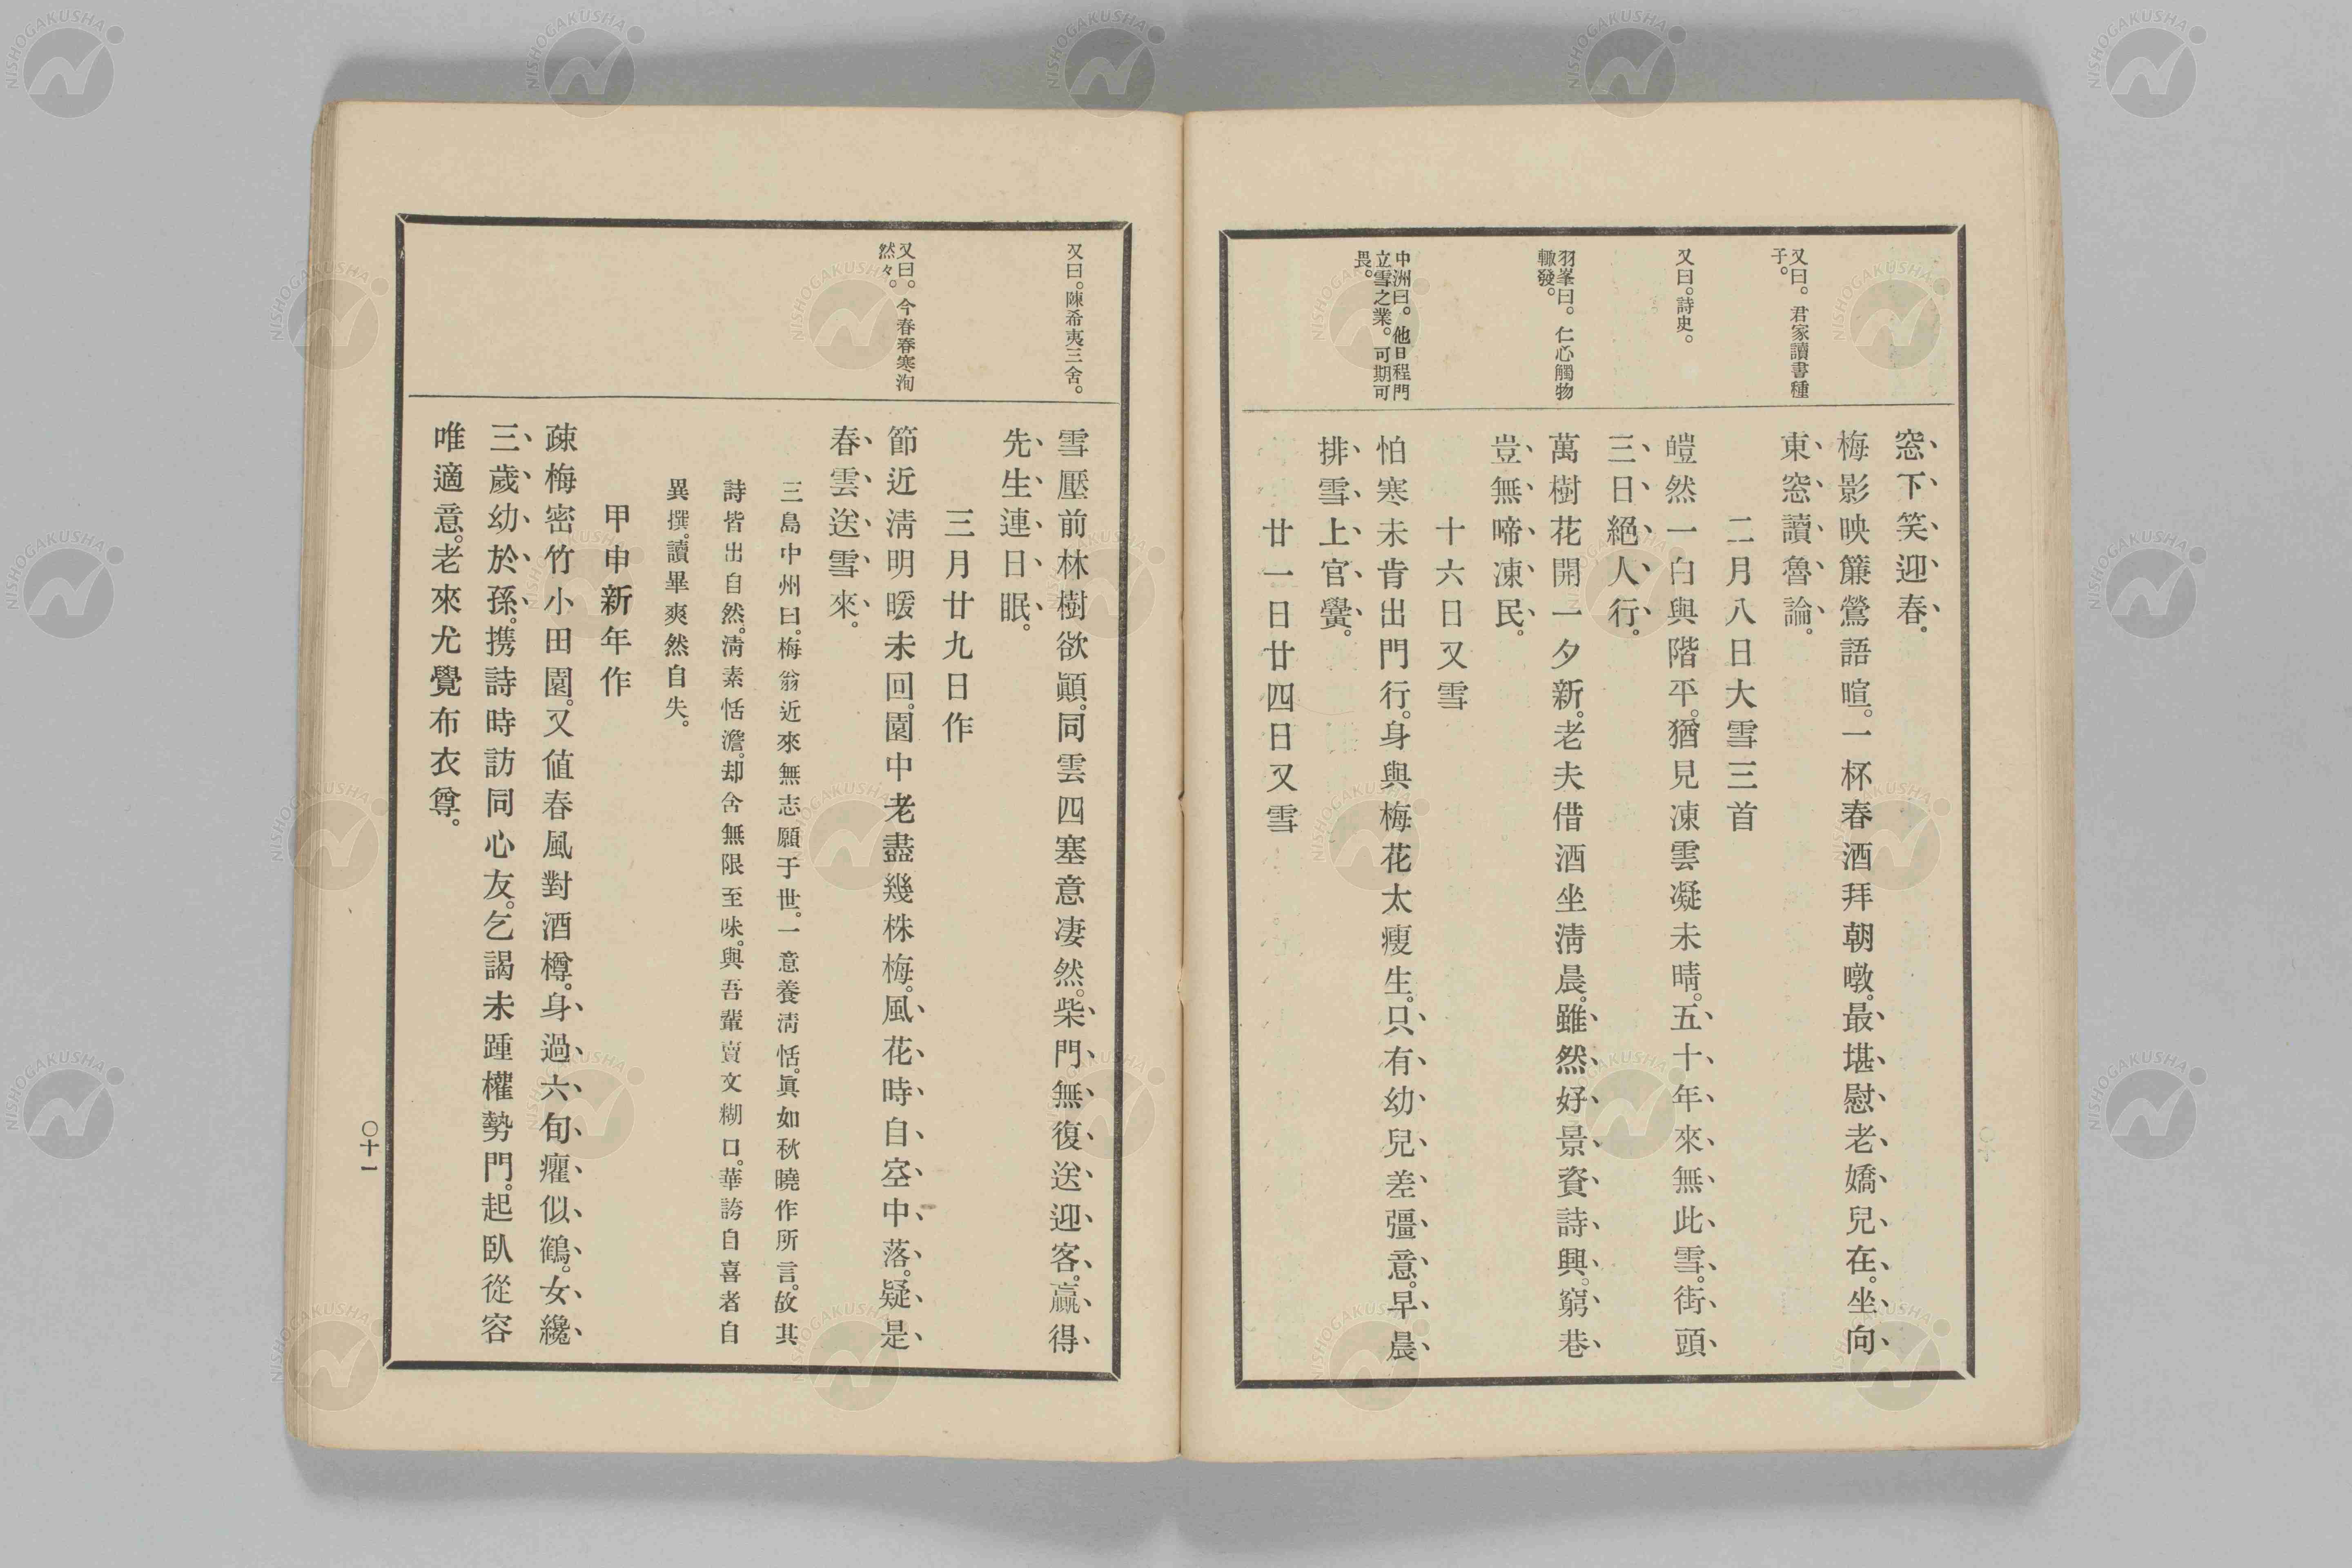 又曰。君家讀書種
子。
又曰。詩史。
羽峯曰。仁心觸物
輙發。
中洲曰。他日程門
立雪之業。可期可
畏。
窓下笑迎春。
梅影映簾鶯語暄。一杯春酒拜朝暾。最堪慰老嬌兒在。坐向
東窓讀魯論。
二月八日大雪三首
皚然一白與階平。猶見凍雲凝未晴。五十年來無此雪。街頭
三日絕人行。
萬樹花開一夕新。老夫借酒坐淸晨。雖然好景資詩興。窮巷
豈無啼凍民。
十六日又雪
怕寒未肯出門行。身與梅花太瘦生。只有幼兒差彊意。早晨
排雪上官黌。
廿一日廿四日又雪
又曰。陳希夷三舍。
又曰。今春春寒洵
然々。
雪壓前林樹欲顚。同雲四塞意凄然。柴門無復送迎客。贏得
先生連日眠。
三月廿九日作
節近淸明暖未回。園中老盡幾株梅。風花時自空中落。疑是
春雲送雪來。
三島中州曰。梅翁近來無志願于世。一意養淸恬。眞如秋曉作所言。故其
詩皆出自然。淸素恬澹。却含無限至味。與吾輩賣文糊口。華誇自喜者自
異撰。讀畢爽然自失。
甲申新年作
疎梅密竹小田園。又値春風對酒樽。身過六旬癯似鶴。女纔
三歲幼於孫。携詩時訪同心友。乞謁未踵權勢門。起臥從容
唯適意。老來尤覺布衣尊。
〇十一
NISHOGAKUSHA